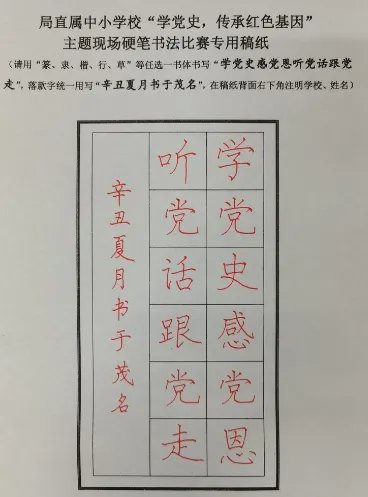 局直属中小学校“学党史，传承红色基因”
主题现场硬笔书法比赛专用稿纸
（请用“篆、隶、楷、行、草”等任选一书体书写“学党史感党恩听党话跟党
走”，落款字统一用写“辛丑夏月书于茂名”，在稿纸背面右下角注明学校、姓名）
学党史感党恩
听党话跟党走
辛丑夏月书于茂名